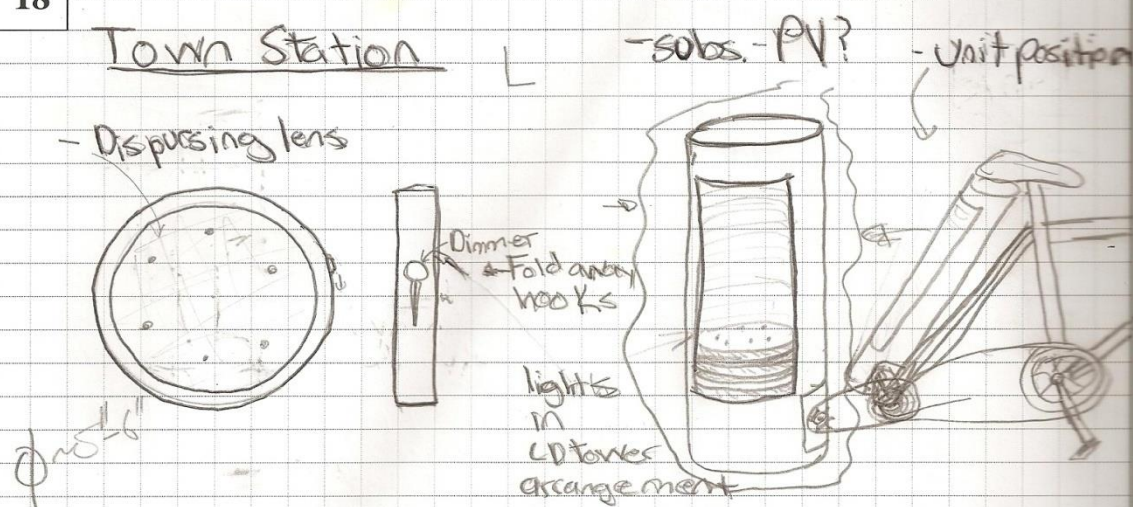 18
Town Station
- subs. - PV?
- Unit position
- Dispursing lens
Dimmer
Fold away
hooks
lights
in
CD tower
arrangement
φ ~5"-6"